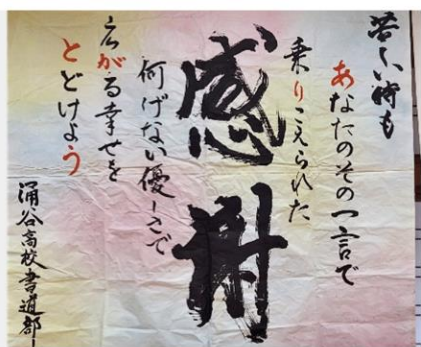 苦しい時も
あなたのその一言で
乗りこえられた
感謝
何げない優しさで
広がる幸せを
とどけよう
涌谷高校書道部